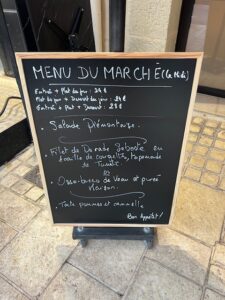 MENU DU MARCHÉ (Le Midi)
Entrée + Plat du jour : 24 €
Plat du jour + Dessert du jour : 24 €
Entrée + Plat + Dessert : 29 €
• Salade Piémontaise.
• Filet de Dorade Sebaste en
écaille de courgettes, tapenade
de Tomate.
ou
• Osso-bucco de Veau et purée
Maison.
• Tarte pommes et cannelle
Bon Appétit !